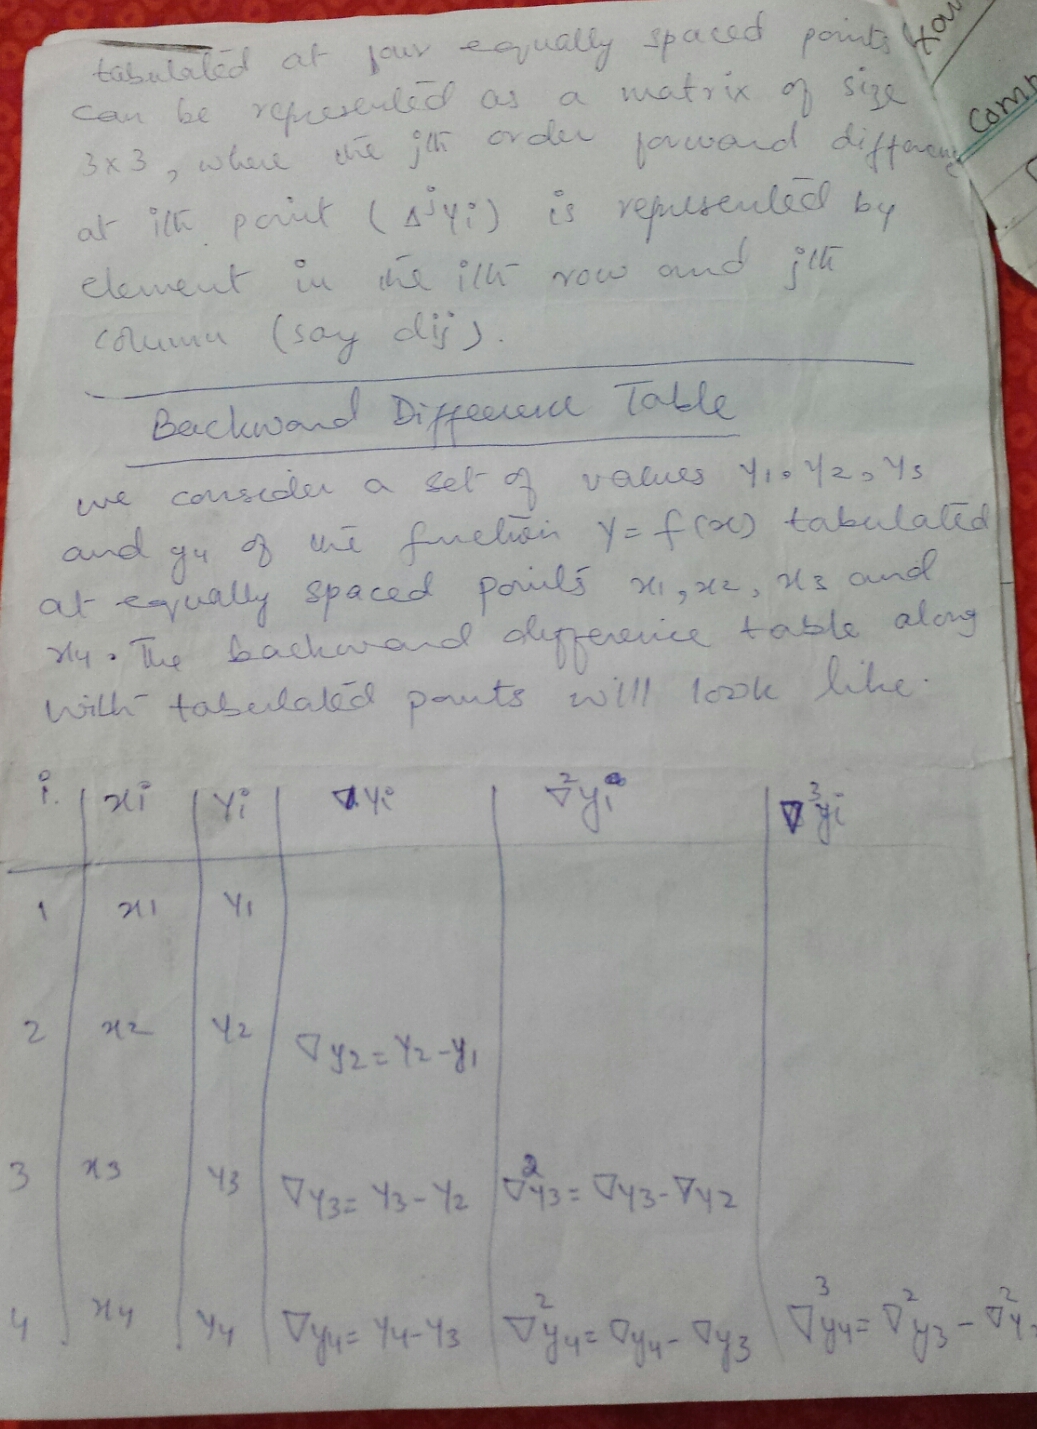 tabulated at four equally spaced points
can be represented as a matrix of size
3x3, where the jth order forward difference
at ith point (Δʲyi) is represented by
element in the ith row and jth
column (say dij).
Backward Difference Table
we consider a set of values y1, y2, y3
and y4 of the function y = f(x) tabulated
at equally spaced points x1, x2, x3 and
x4. The backward difference table along
with tabulated points will look like.
i. xi yi ∇yi ∇²yi ∇³yi
1 x1 y1
2 x2 y2 ∇y2 = y2 - y1
3 x3 y3 ∇y3 = y3 - y2 ∇²y3 = ∇y3 - ∇y2
4 x4 y4 ∇y4 = y4 - y3 ∇²y4 = ∇y4 - ∇y3 ∇³y4 = ∇²y3 - ∇²y